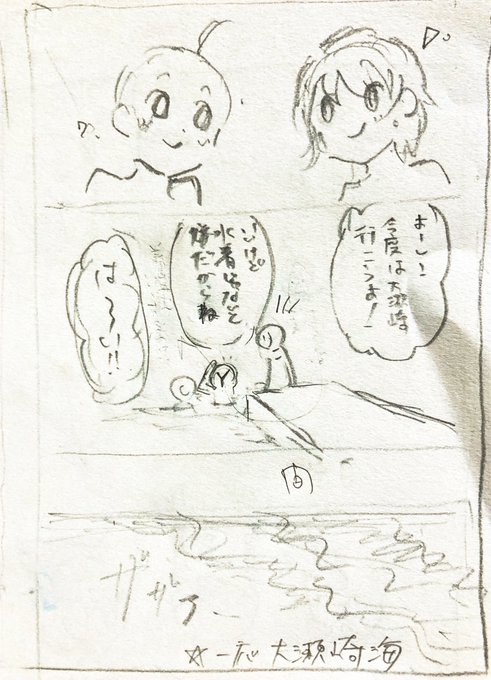 よーし!
今度は大瀬崎
行こうよ!
いいけど
水着じゃないと
嫌だからね
は〜い!!
ザザァー
☆一応大瀬崎海